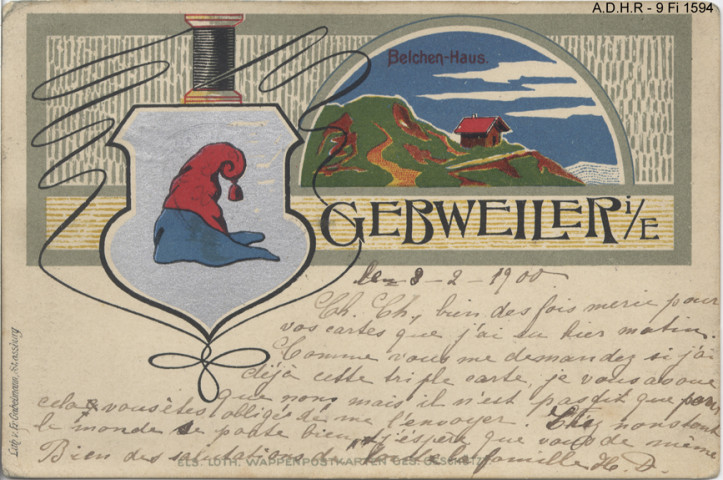 A.D.H.R - 9 Fi 1594
Belchen-Haus.
GEBWEILER i/E
le 3-2-1900
Ch. Ch, bien des fois merci pour
vos cartes que j'ai eu hier matin.
Comme vous me demandez si j'ai
déjà cette triple carte, je vous avoue
que non, mais il n'est pas dit que pour
cela vous êtes obligé de me l'envoyer. Chez nous tout
le monde se porte bien, j'espère que vous de même
Bien des salutations de toute la famille H. D.
ELS. LOTH. WAPPENPOSTKARTEN GES. GESCHÜTZT
Lith. v. Strassburg